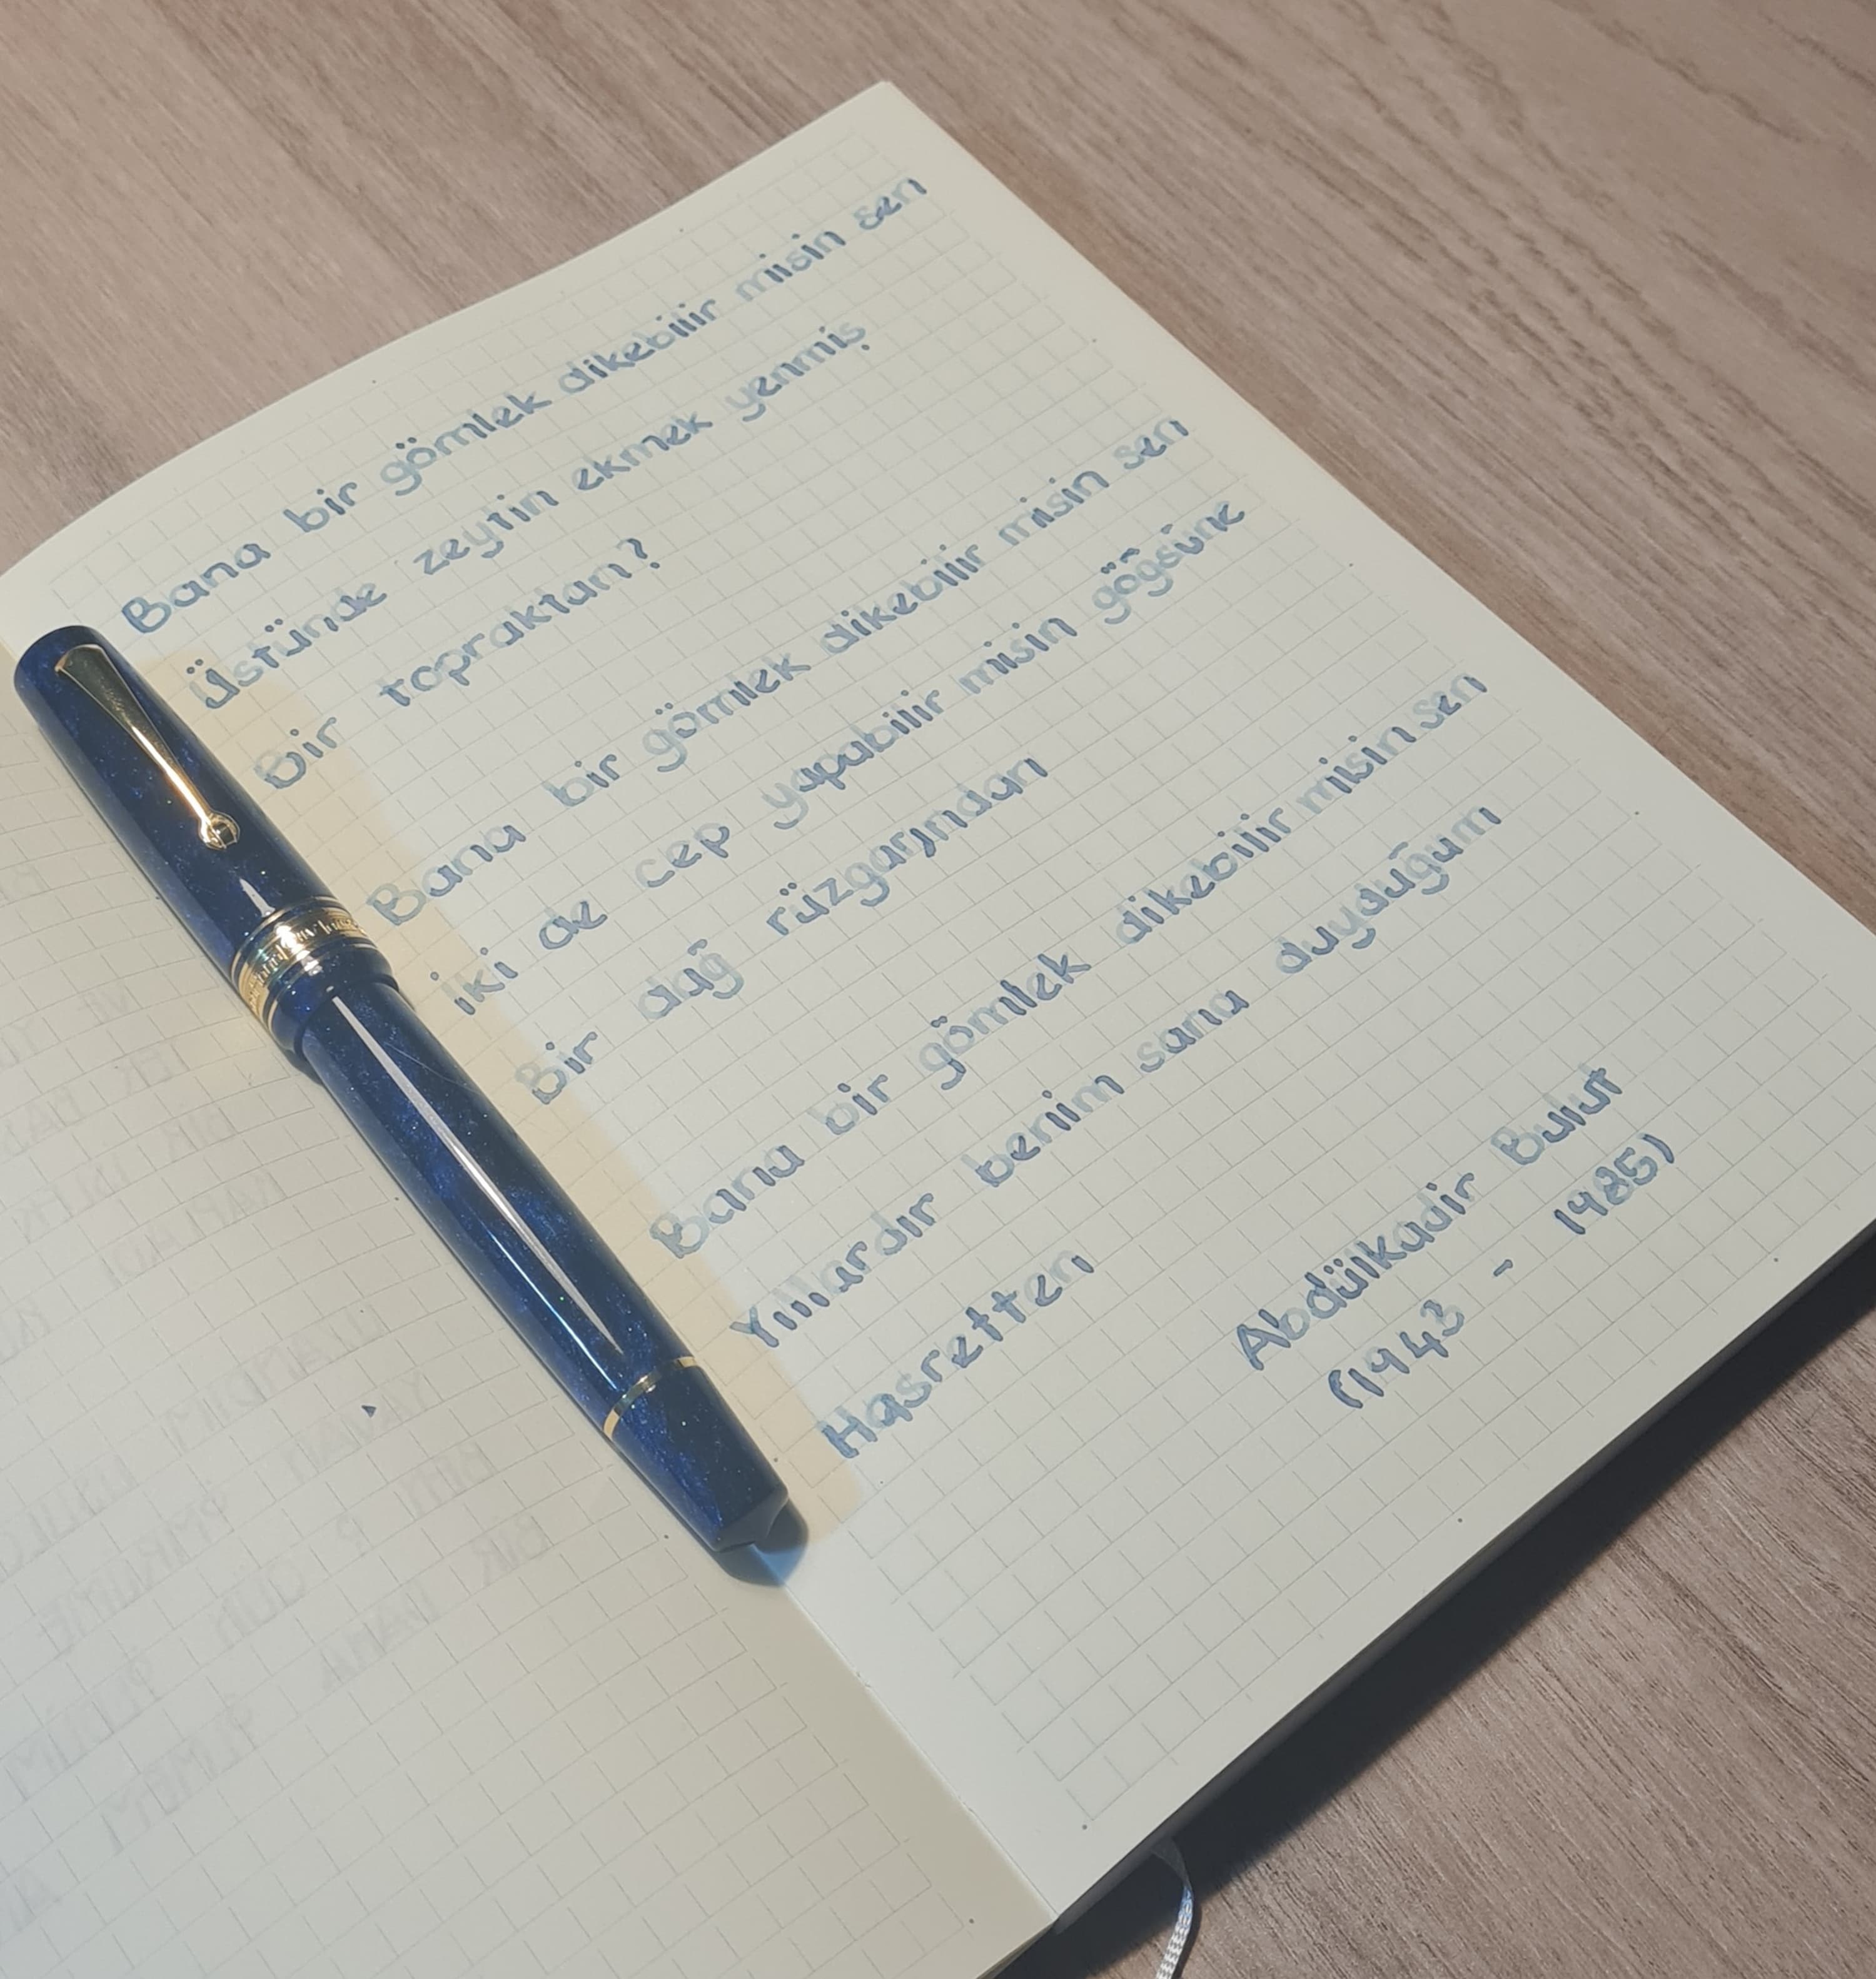 Bana bir gömlek dikebilir misin sen
Üstünde zeytin ekmek yenmiş
Bir topraktan?
Bana bir gömlek dikebilir misin sen
İki de cep yapabilir misin göğsüne
Bir dağ rüzgarından
Bana bir gömlek dikebilir misin sen
Yıllardır benim sana duyduğum
Hasretten
Abdülkadir Bulut
(1943 - 1985)